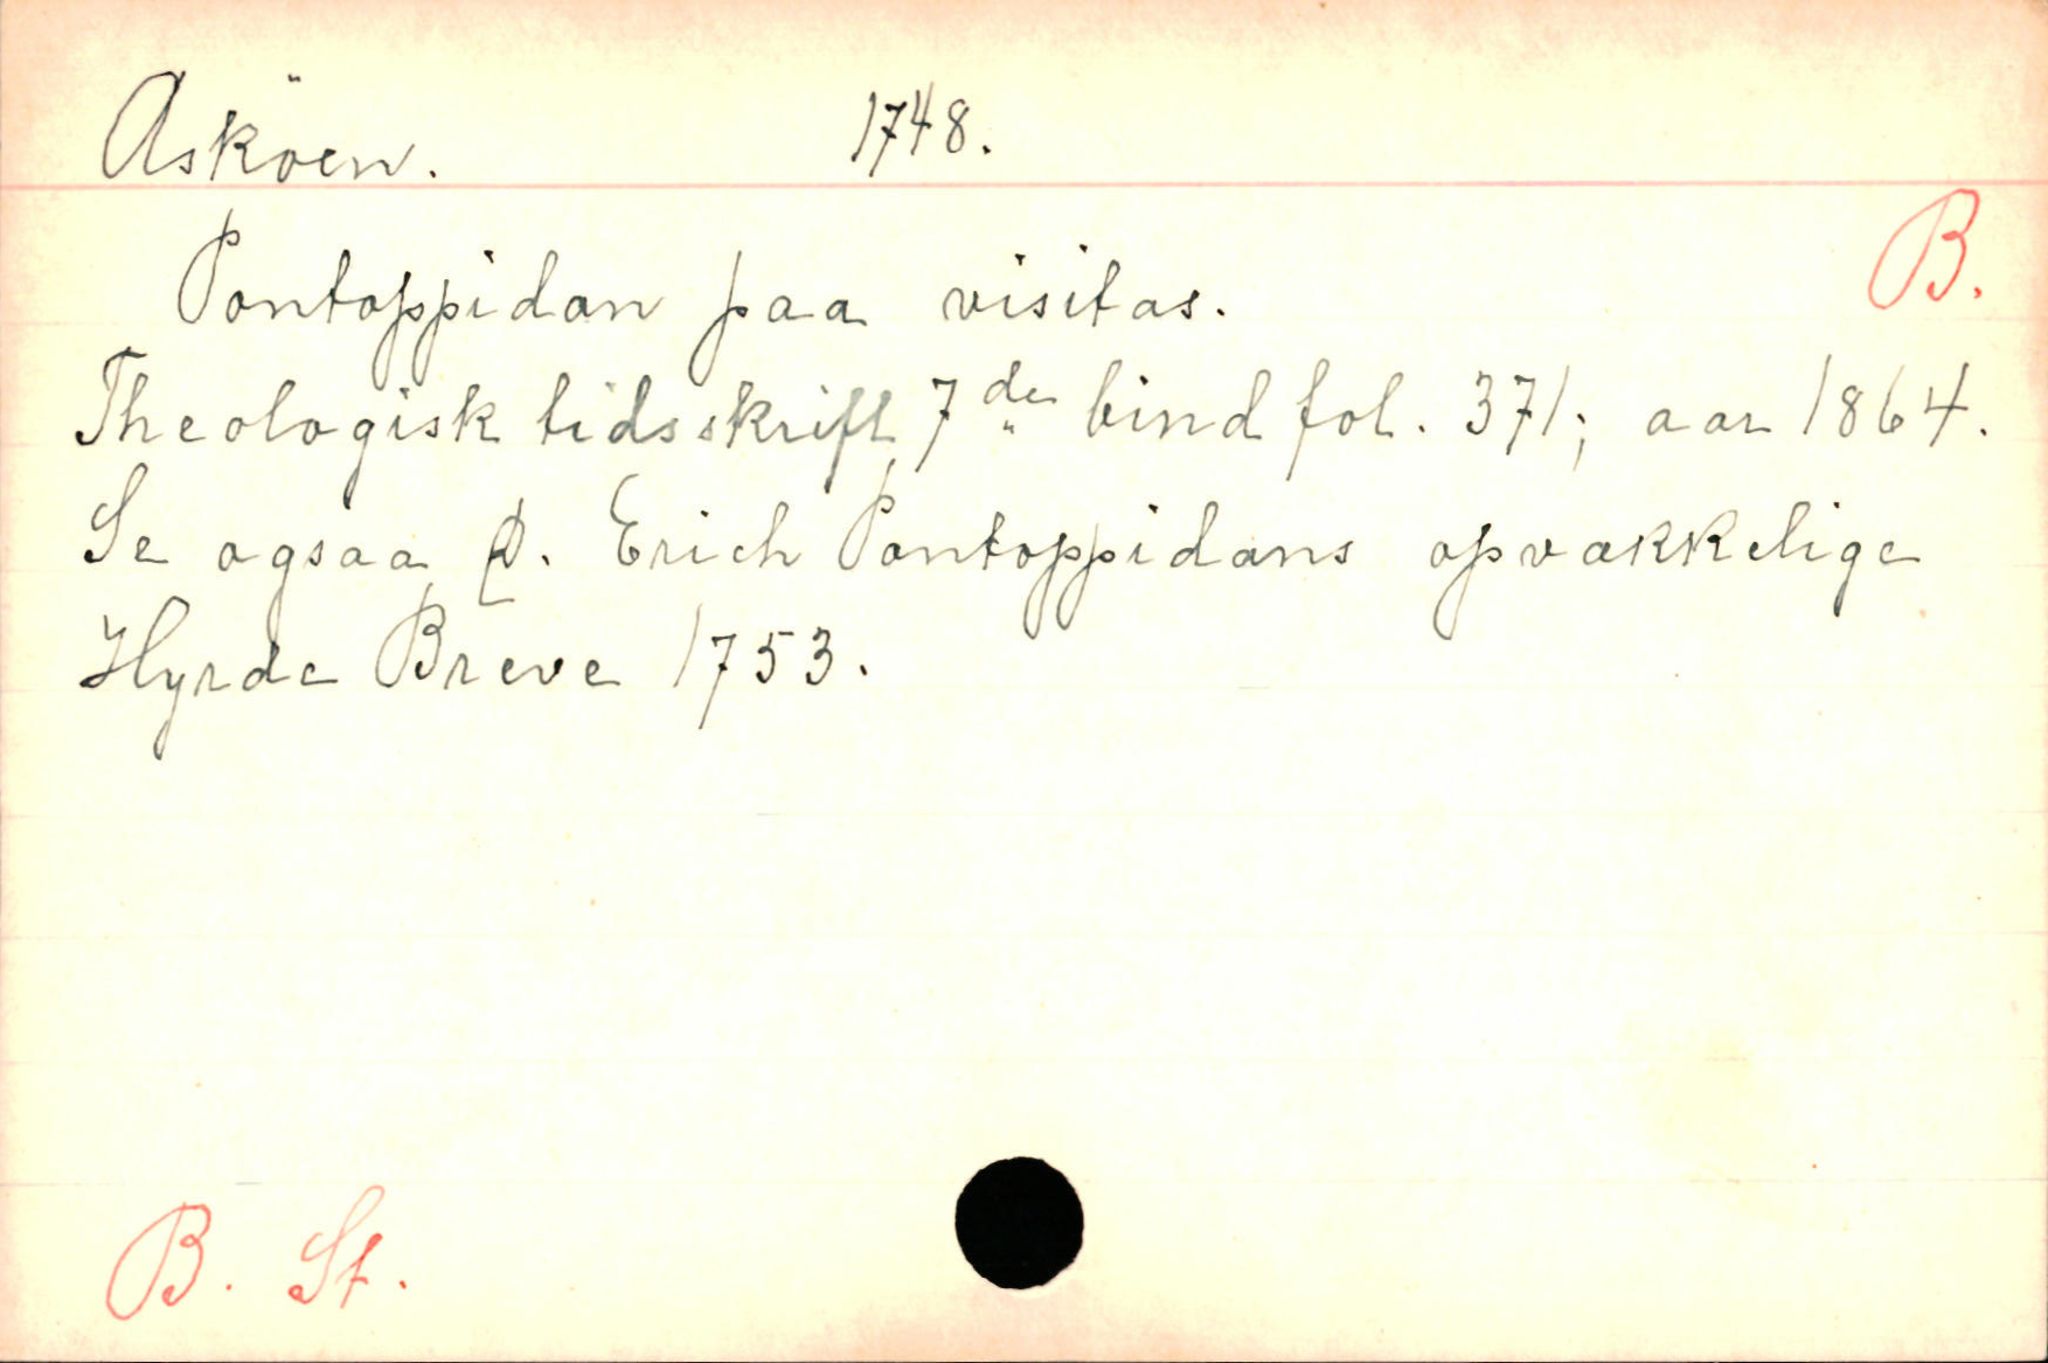 Asköen. 1748.
B.
Pontoppidan paa visitas.
Theologisk tidsskrift 7de bind fol. 371; aar 1864.
Se ogsaa D. Erich Pontoppidans opvækkelige
Hyrde Breve 1753.
B. St.